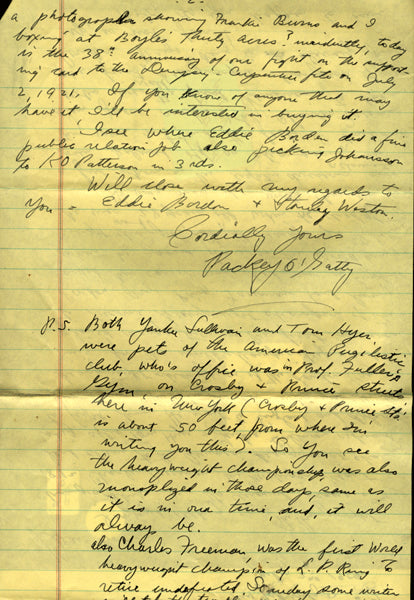 - 2 -
a photographer showing Frankie Burns and I
boxing at Boyle's Thirty Acres? incidently, today
is the 38th anniversary of our fight on the support
ing card to the Dempsey - Carpentier fite on July
2, 1921. If you know of anyone that may
have it I'll be interested in buying it.
I see where Eddie Borden did a fine
public relation job also picking Johansson
to KO Patterson in 3 rds.
Will close with my regards to
You - Eddie Bordon + Stanley Weston.
Cordially Yours
Packey O'Gatty
P.S. Both Yankee Sullivan and Tom Hyer
were pets of the American Pugilistic
club, who's office was in Prof. Fuller's
Gym, on Crosby + Prince streets
here in New York (Crosby + Prince sts.
is about 50 feet from where I'm
writing you this). So you see
the heavyweight championship was also
monoplized in those days, same as
it is in our time, and, it will
always be.
also Charles Freeman was the first World
heavyweight champion of L. P. Ring to
retire undefeated Someday some writer